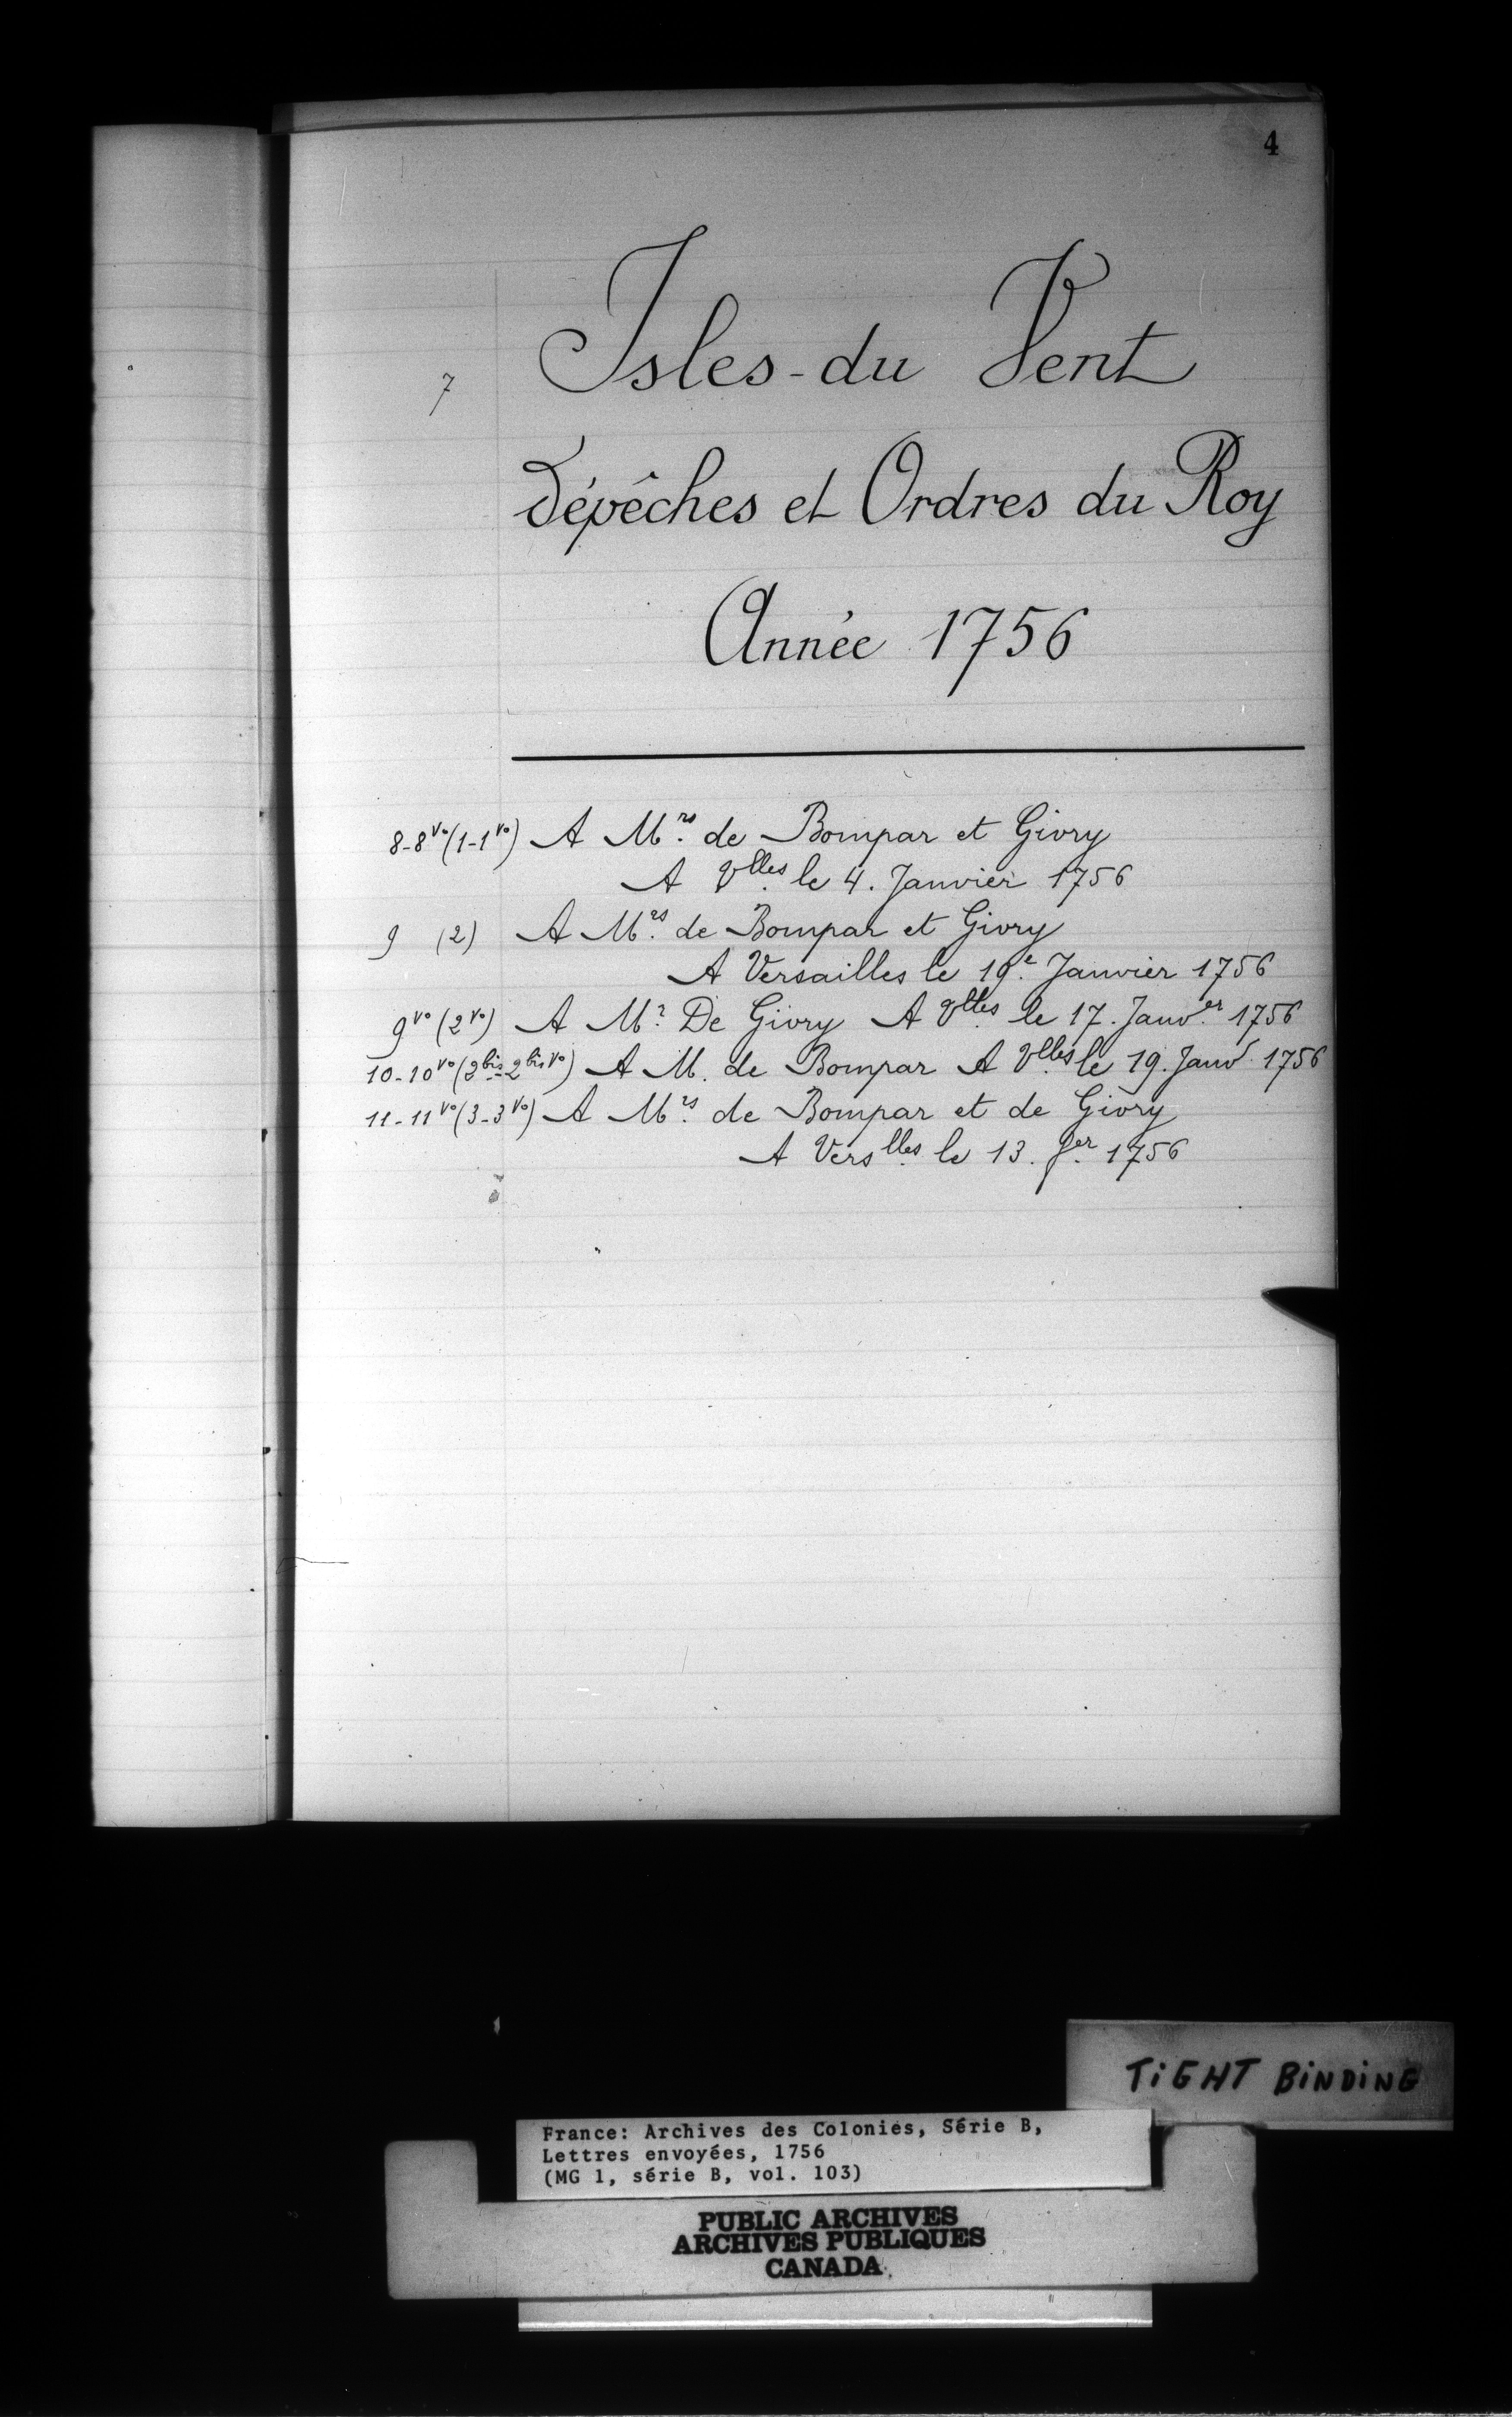 4
7 Isles-du Vent
Dépêches et Ordres du Roy
Année 1756
8-8vo (1-1vo) A Mrs. de Bompar et Givry
A Vlles. le 4. Janvier 1756
9 (2) A Mrs. de Bompar et Givry
A Versailles le 19e. Janvier 1756
9vo (2vo) A Mr. De Givry A Vlles. le 17. Janver. 1756
10-10vo (2bis-2bisvo) A M. de Bompar A Vlles. le 19. Janvr. 1756
11-11vo (3-3vo) A Mrs. de Bompar et de Givry
A Verslles. le 13. fer. 1756
TiGHT BiNDiNG
France: Archives des Colonies, Série B,
Lettres envoyées, 1756
(MG 1, série B, vol. 103)
PUBLIC ARCHIVES
ARCHIVES PUBLIQUES
CANADA